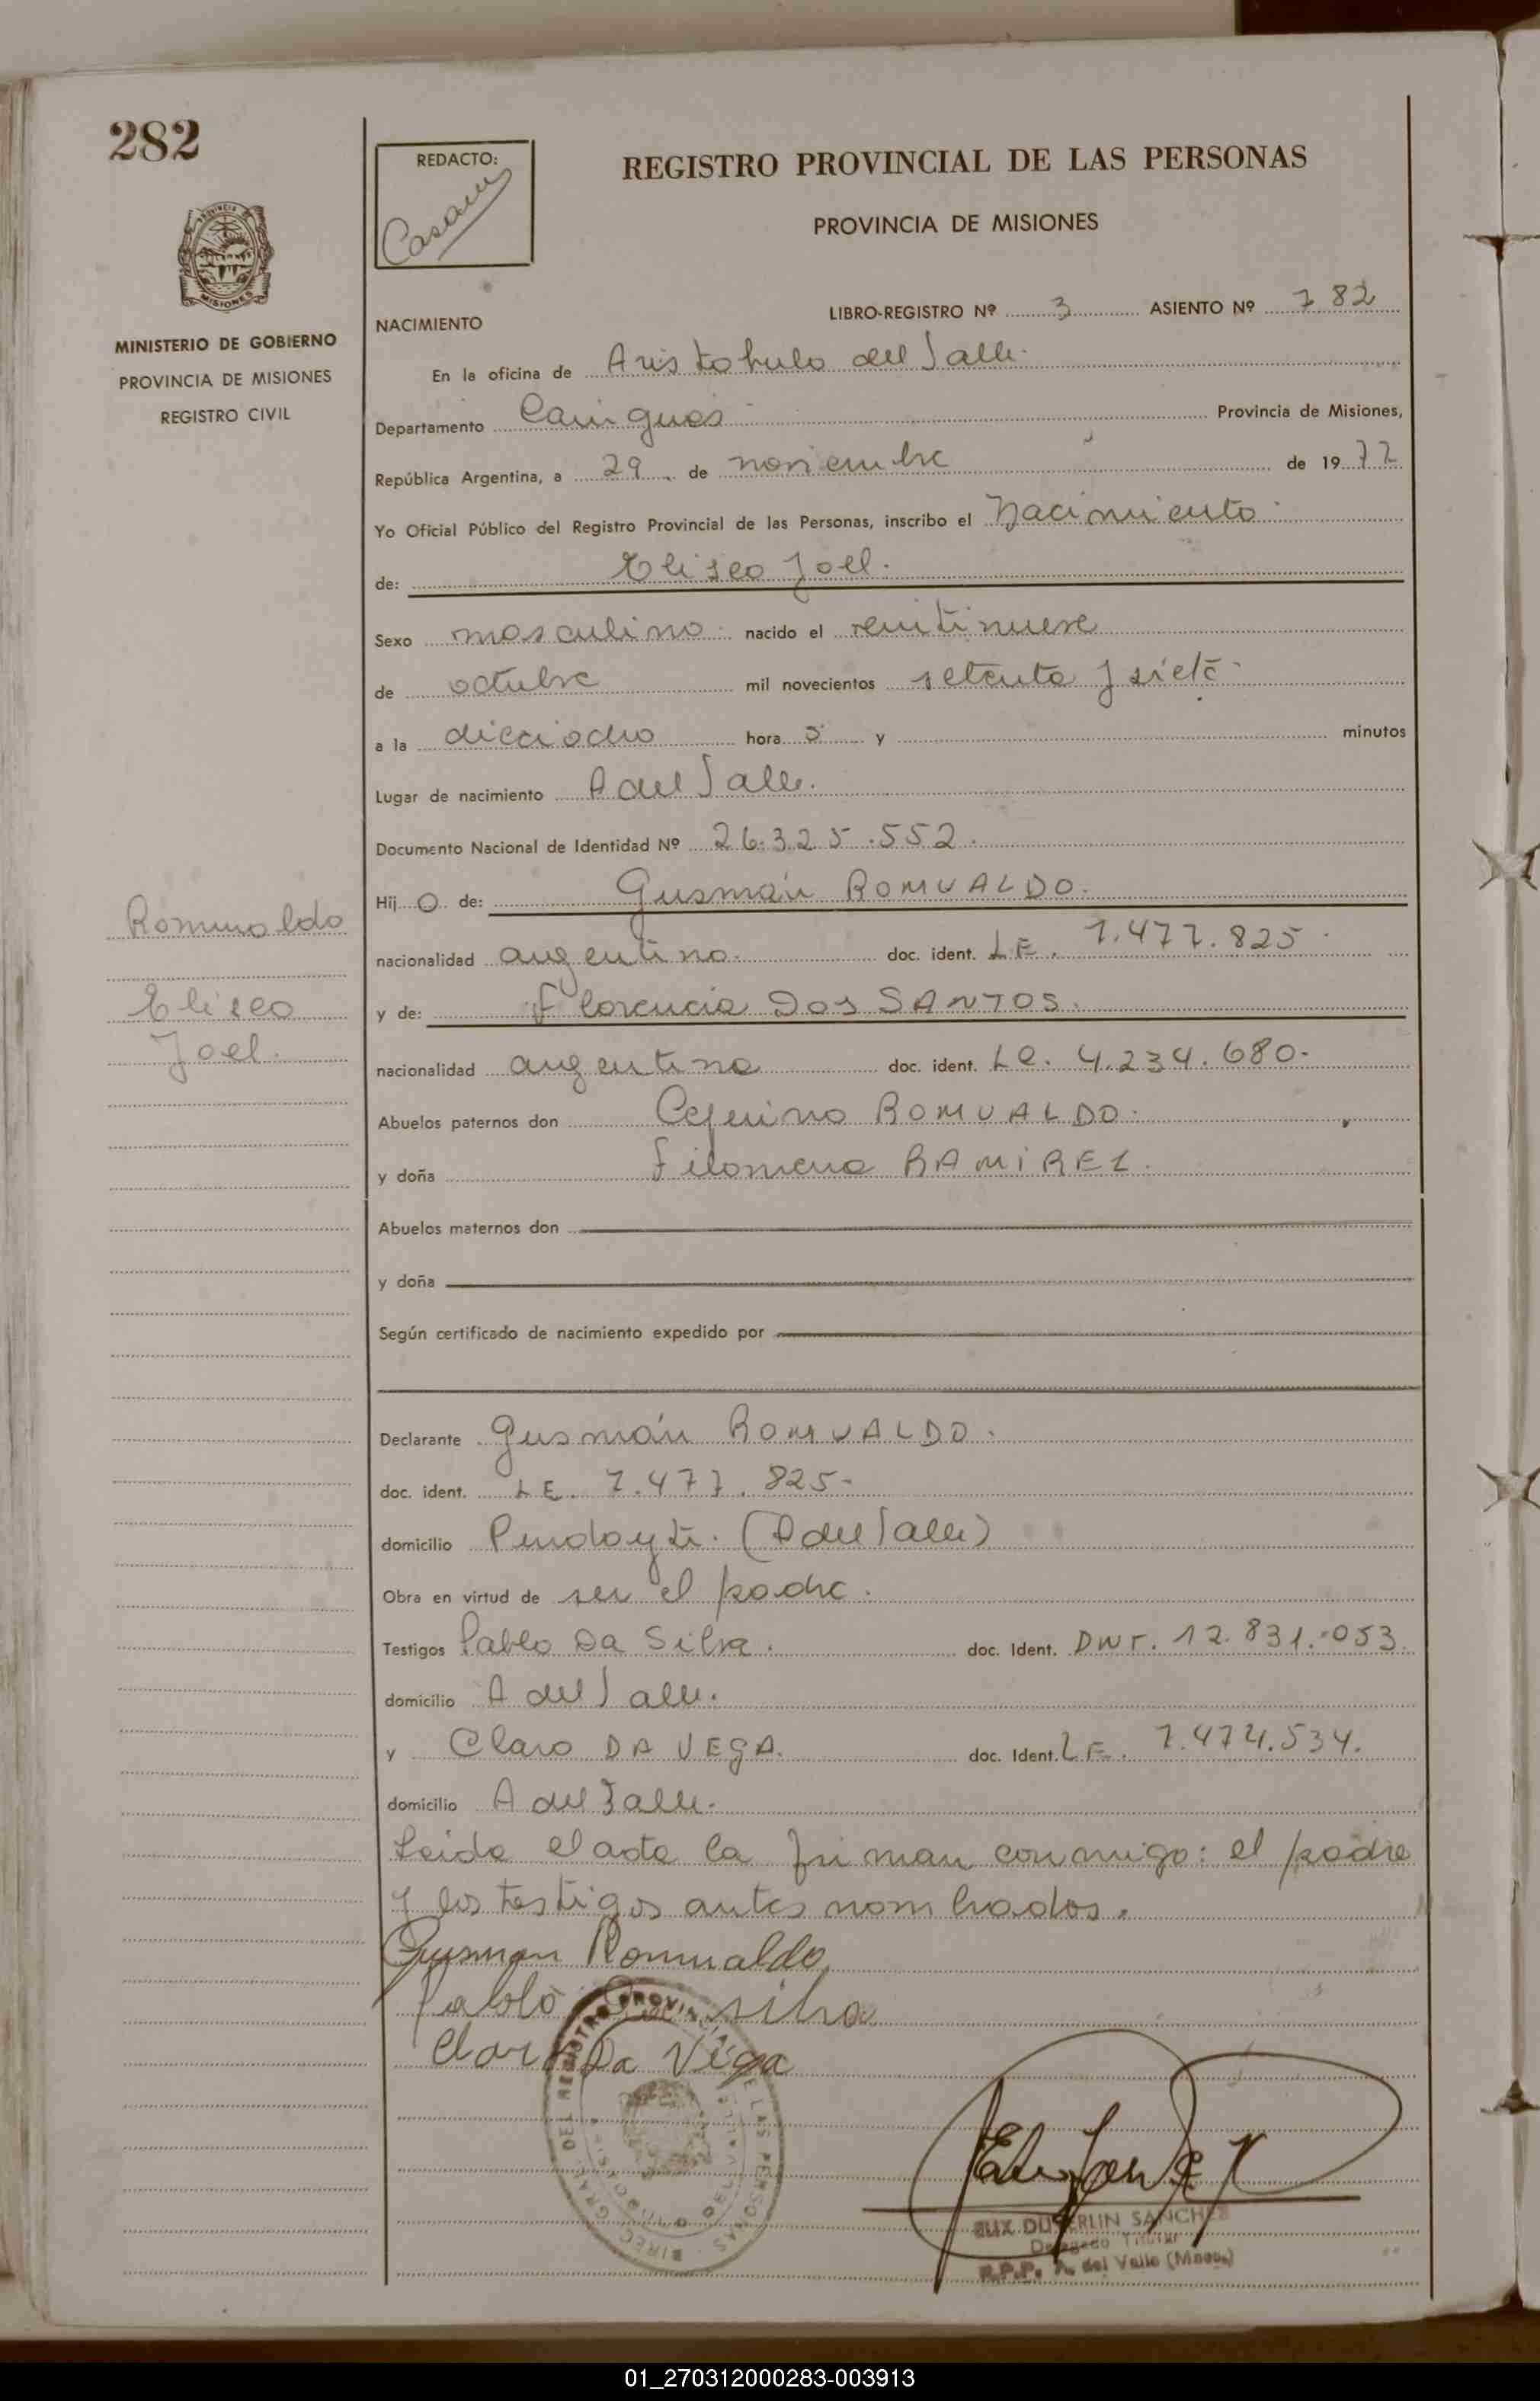 282
REDACTO:
Casam
REGISTRO PROVINCIAL DE LAS PERSONAS
PROVINCIA DE MISIONES
MISIONES
MINISTERIO DE GOBIERNO
PROVINCIA DE MISIONES
REGISTRO CIVIL
LIBRO-REGISTRO Nº 3 ASIENTO Nº 782
NACIMIENTO
En la oficina de Aristobulo del Valle.
Departamento Cainguas Provincia de Misiones,
República Argentina, a 29 de noviembre de 1977
Yo Oficial Público del Registro Provincial de las Personas, inscribo el Nacimiento
de: Eliseo Joel.
Sexo masculino. nacido el veintinueve
de octubre mil novecientos setenta y siete.
a la dieciocho hora s y minutos
Lugar de nacimiento A del Valle.
Documento Nacional de Identidad Nº 26.325.552.
Hij O de: Gusmán ROMUALDO.
nacionalidad argentino. doc. ident. L.E. 7.477.825.
y de: Florencia DOS SANTOS.
nacionalidad argentina doc. ident. LC. 4.234.680.
Abuelos paternos don Ceferino ROMUALDO.
y doña Filomena RAMIREZ.
Abuelos maternos don
y doña
Según certificado de nacimiento expedido por
Romualdo
Eliseo
Joel.
Declarante Gusmán ROMUALDO.
doc. ident. LE. 7.477.825.
domicilio Pindayti. (A del Valle)
Obra en virtud de ser el padre.
Testigos Pablo Da Silva. doc. Ident. DNI. 12.831.053.
domicilio A del Valle.
y Claro DA VEGA. doc. Ident. LE. 7.474.534.
domicilio A del Valle.
Leida el acta la firman conmigo: el padre
y los testigos antes nombrados.
Gusman Romualdo
Pablo Da silva
Claro Da Vega
DIREC. GRAL. DEL REGISTRO PROVINCIAL DE LAS PERSONAS
SANCHEZ
Delegado Titular
R.P.P. A. del Valle (Mnes.)
01_270312000283-003913